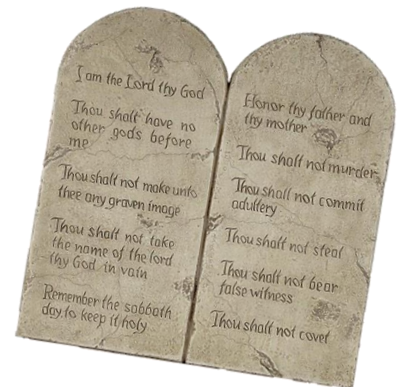 I am the Lord thy God
Thou shalt have no
other gods before
me
Thou shalt not make unto
thee any graven image
Thou shalt not take
the name of the lord
thy God in vain
Remember the sabbath
day to keep it holy
Honor thy father and
thy mother
Thou shalt not murder
Thou shalt not commit
adultery
Thou shalt not steal
Thou shalt not bear
false witness
Thou shalt not covet